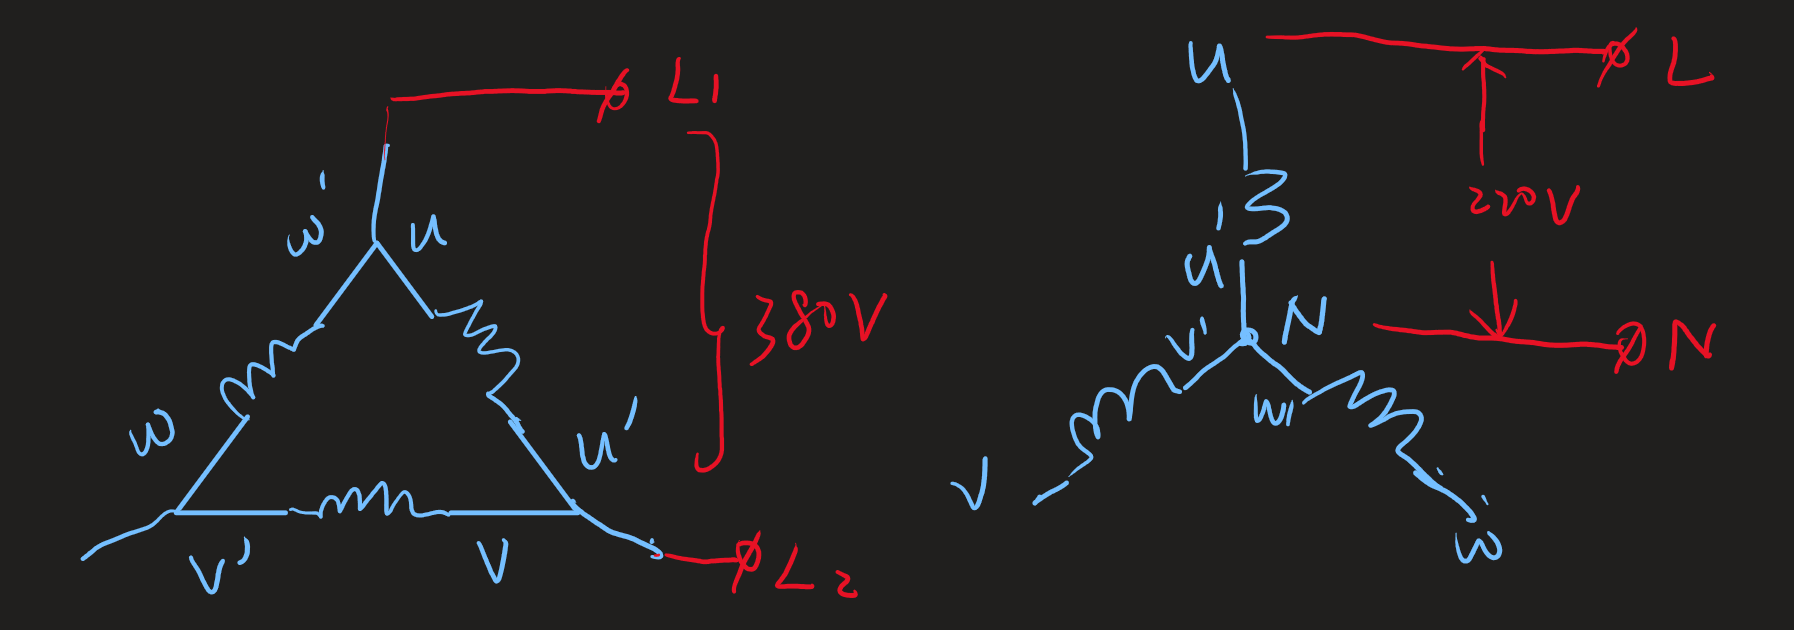 L1
w'
u
380V
w
u'
v'
v
L2
u
L
220V
u'
N
v'
N
w'
v
w